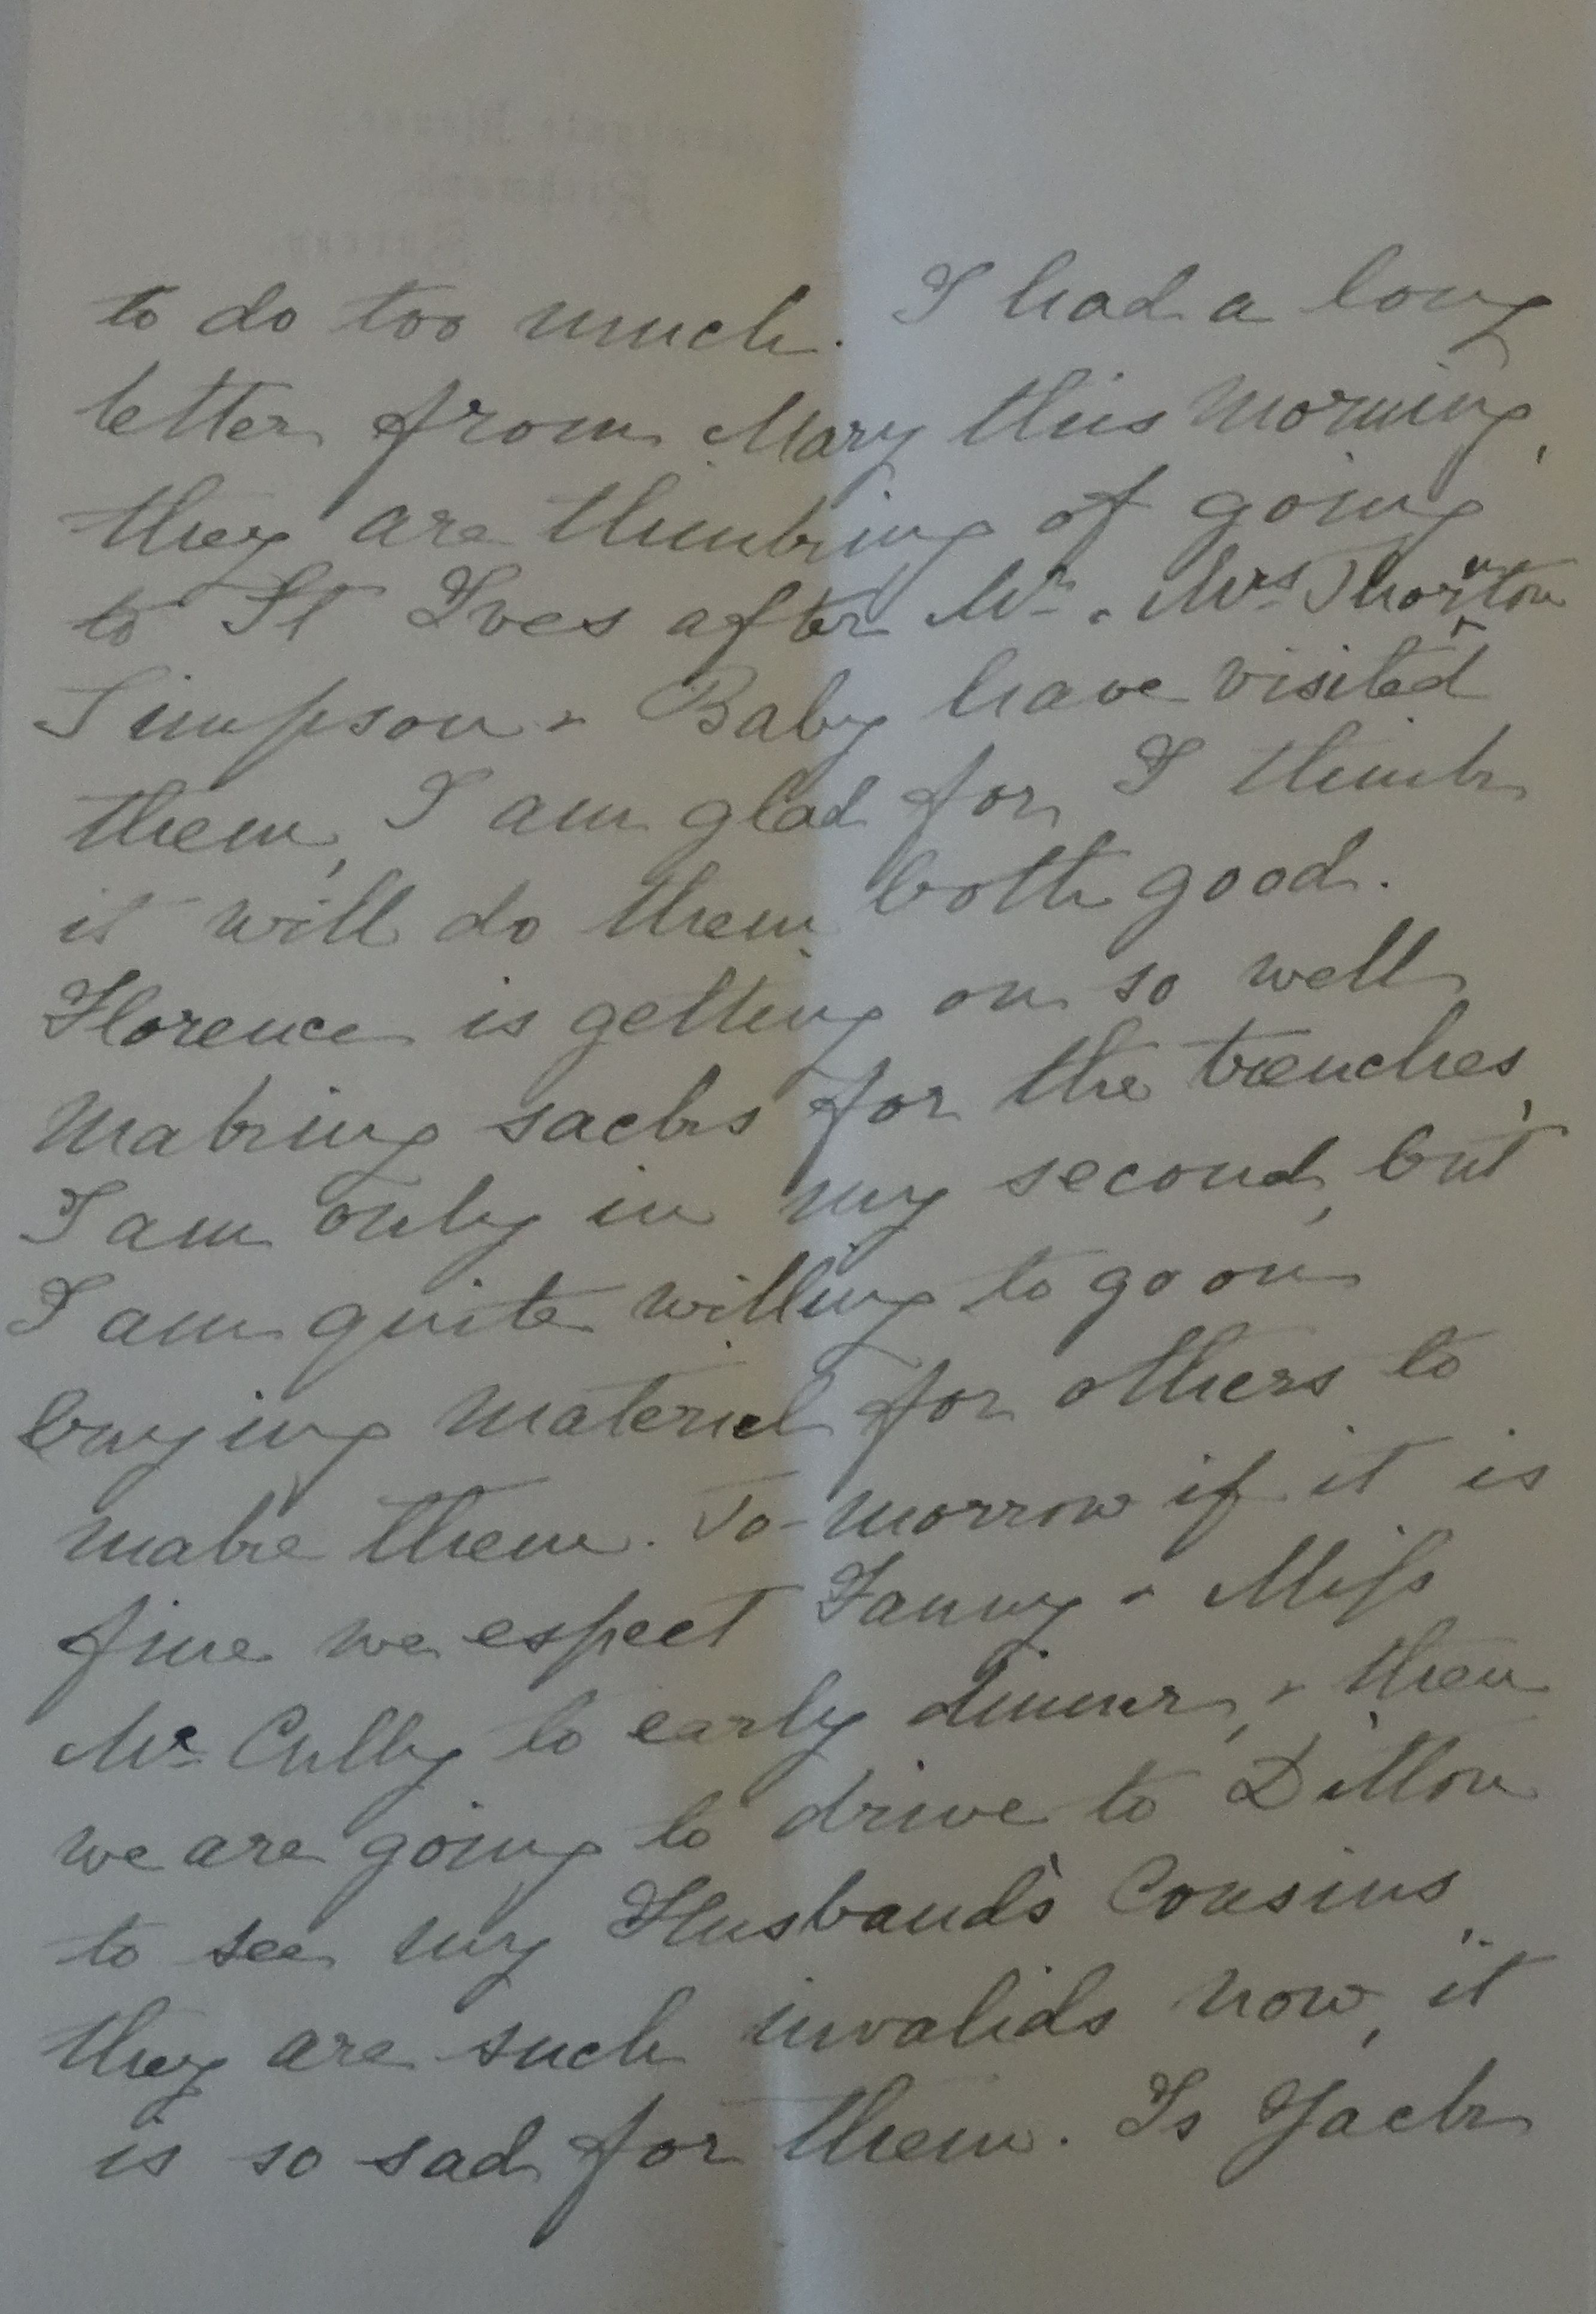 to do too much. I had a long
letter from Mary this morning,
they are thinking of going
to St Ives after Mr. & Mrs. Thornton
Simpson & Baby have visited
them, I am glad for I think
it will do them both good.
Florence is getting on so well
making sacks for the trenches,
I am only in my second, but
I am quite willing to go on
buying material for others to
make them. To-morrow if it is
fine we expect Fanny & Miss
Mc Cully to early dinner, & then
we are going to drive to Ditton
to see my Husband's Cousins,
they are such invalids now, it
is so sad for them. Is Jack